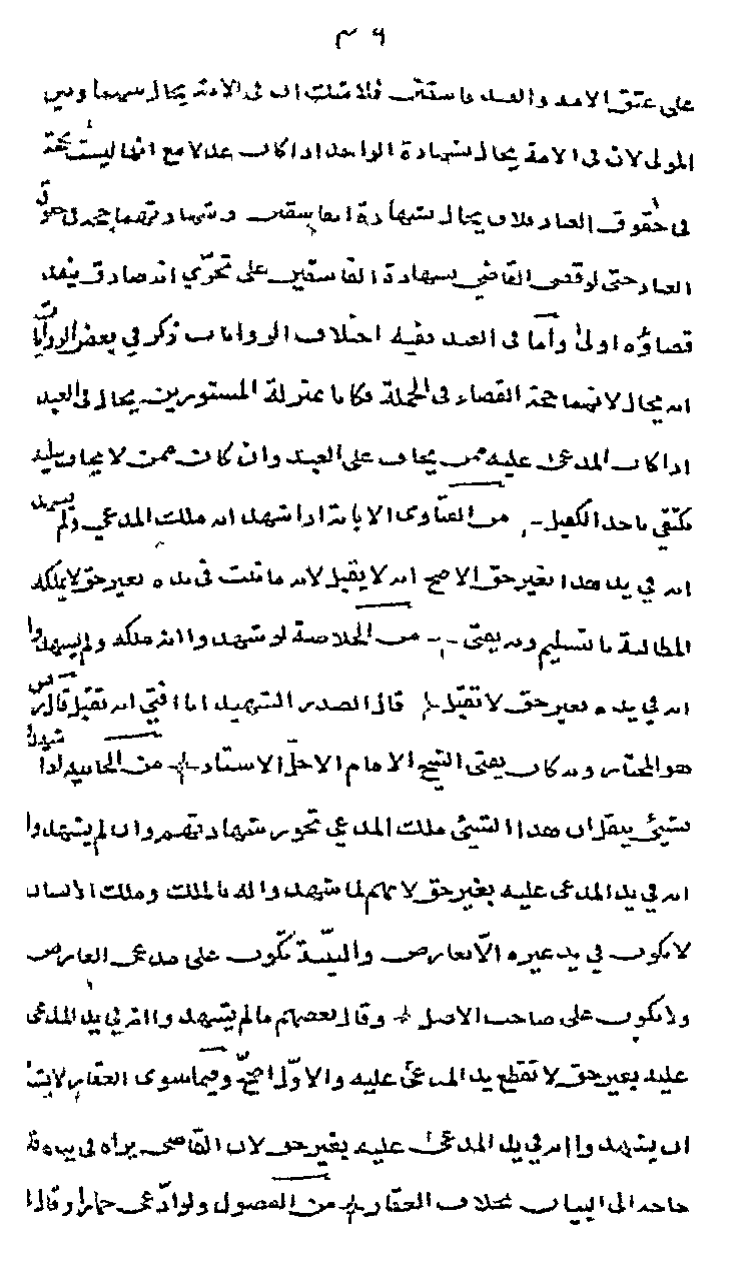 على عتق الامة والعبد فاسقين فلا شك ان فى الامة يحال بينها وبين
المولى لان فى الامة يحال بشهادة الواحد اذا كان عدلا مع انها ليست بحجة
فى حقوق العباد فلان يحال بشهادة الفاسقين وشهادتهما حجة فى حقوق
العباد حتى لو قضى القاضي بشهادة الفاسقين على تحرّي انه صادق ينفذ
قضاؤه اولى واما فى العبد ففيه اختلاف الروايات ذكر في بعض الروايات
انه يحال لانهما حجة القضاء فى الجملة فكانا بمنزلة المستورين يحال فى العبد
اذا كان المدعى عليه ممن يخاف على العبد وان كان ممن لا يخاف عليه
يكتفي باخذ الكفيل من الفتاوى اذا شهد انه ملك المدعي ولم يشهد
انه في يد هذا بغير حق الاصح انه لا يقبل لانه ما لم يثبت فى يده بغير حق لا يملكه
المطالبة بالتسليم وبه يفتى من الخلاصة لو شهدوا انه ملكه ولم يشهدوا
انه في يده بغير حق لا تقبل قال الصدر الشهيد انا افتي انه تقبل قال
هو المختار وبه كان يفتى الشيخ الامام الاجل الاستاد من الخانية اذا شهدوا
بشيئ ينقل ان هذا الشيئ ملك المدعي تجوز شهادتهم وان لم يشهدوا
انه في يد المدعى عليه بغير حق لانهم لما شهدوا له بالملك وملك الانسان
لا يكون في يد غيره الّا بعارض والبيّنة تكون على مدعى العارض
ولا تكون على صاحب الاصل وقال بعضهم ما لم يشهدوا انه في يد المدعى
عليه بغير حق لا تقطع يد المدعى عليه والاوّل اصحّ وفيما سوى العقار لا يشترط
ان يشهدوا انه في يد المدعى عليه بغير حق لان القاضى يراه فى يده فلا
حاجه الى البيان بخلاف العقار من الفصول ولو ادّعى حمارا وقال